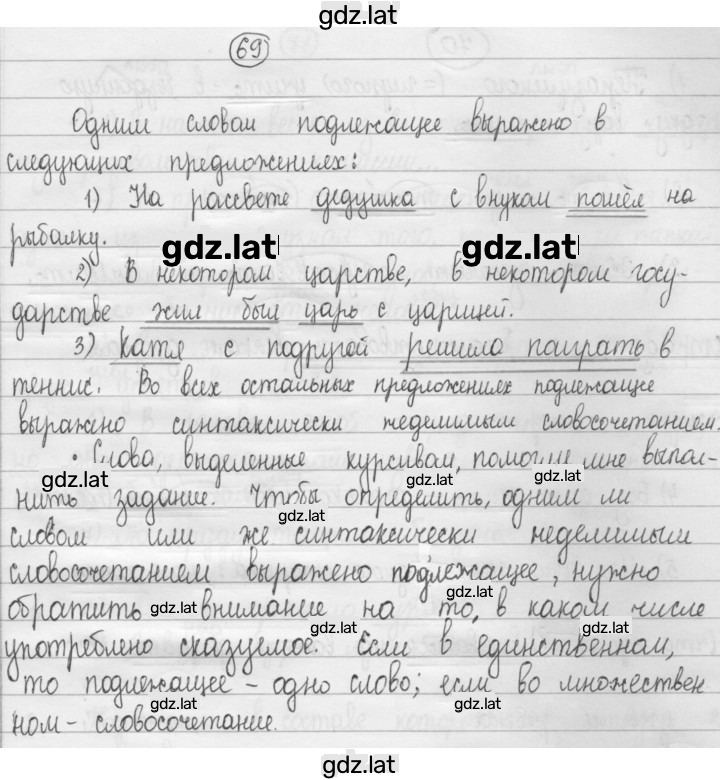 gdz.lat
69
Одним словом подлежащее выражено в
следующих предложениях:
1) На рассвете дедушка с внуком пошёл на
рыбалку.
gdz.lat gdz.lat
2) В некотором царстве, в некотором госу-
дарстве жил был царь с царицей.
3) Катя с подругой решила поиграть в
теннис. Во всех остальных предложениях подлежащее
выражено синтаксически неделимым словосочетанием.
• Слова, выделенные курсивом, помогли мне выпол-
gdz.lat gdz.lat gdz.lat
нить задание. Чтобы определить, одним ли
gdz.lat
словом или же синтаксически неделимым
словосочетанием выражено подлежащее, нужно
обратить внимание на то, в каком числе
gdz.lat gdz.lat
употреблено сказуемое. Если в единственном,
gdz.lat gdz.lat
то подлежащее - одно слово; если во множествен
gdz.lat
ном - словосочетание.
gdz.lat